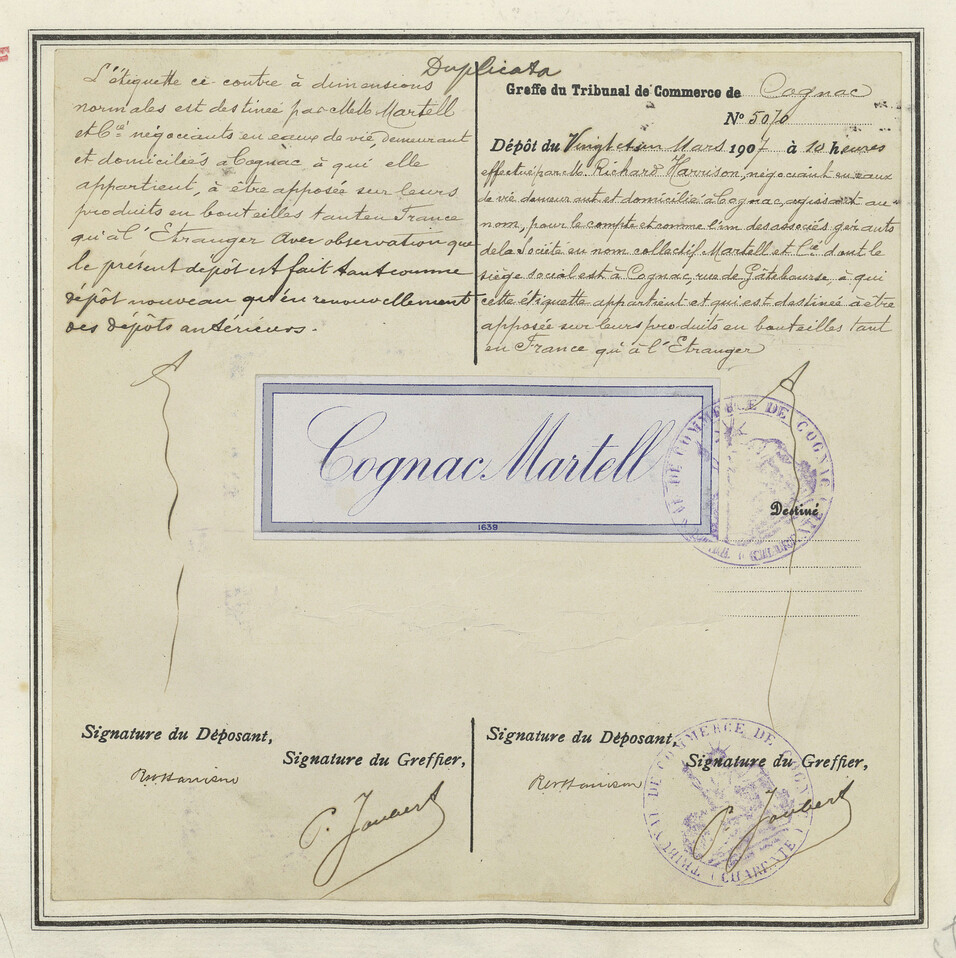 Duplicata
L'étiquette ci-contre à dimensions
normales est destinée par M.M. Martell
et Cie négociants en eaux de vie, demeurant
et domiciliés à Cognac à qui elle
appartient, à être apposée sur leurs
produits en bouteilles tant en France
qu'à l'Etranger avec observation que
le présent dépôt est fait tant comme
dépôt nouveau qu'en renouvellement
des dépôts antérieurs.
Greffe du Tribunal de Commerce de Cognac
No 5070
Dépôt du Vingt et un Mars 1907 à 10 heures
effectué par M. Richard Harrison, négociant en eaux
de vie demeurant et domicilié à Cognac, agissant au
nom, pour le compte et comme l'un des associés gérants
de la Société en nom collectif Martell et Cie dont le
siège social est à Cognac, rue de Gâtebourse, à qui
cette étiquette appartient et qui est destinée à être
apposée sur leurs produits en bouteilles tant
en France qu'à l'Etranger
Cognac Martell
1639
DE COMMERCE DE COGNAC
Destiné
Signature du Déposant,
Signature du Greffier,
P. Joubert
Signature du Déposant,
Signature du Greffier,
P. Joubert
TRIBUNAL DE COMMERCE DE COGNAC
(CHARENTE)